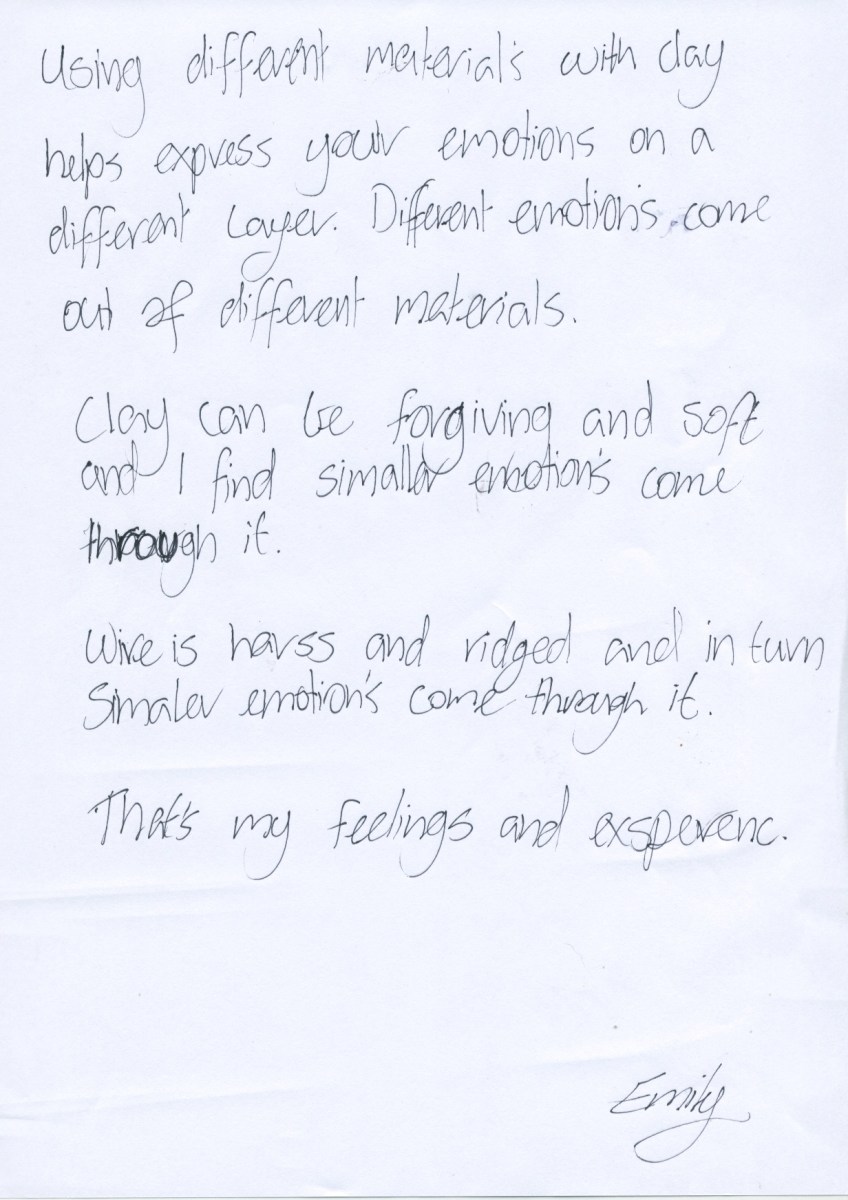 Using different material's with clay
helps express your emotions on a
different Layer. Different emotion's come
out of different materials.
Clay can be forgiving and soft
and I find simallar emotion's come
through it.
Wire is harss and ridged and in turn
Simaler emotion's come through it.
That's my feelings and exsperenc.
Emily